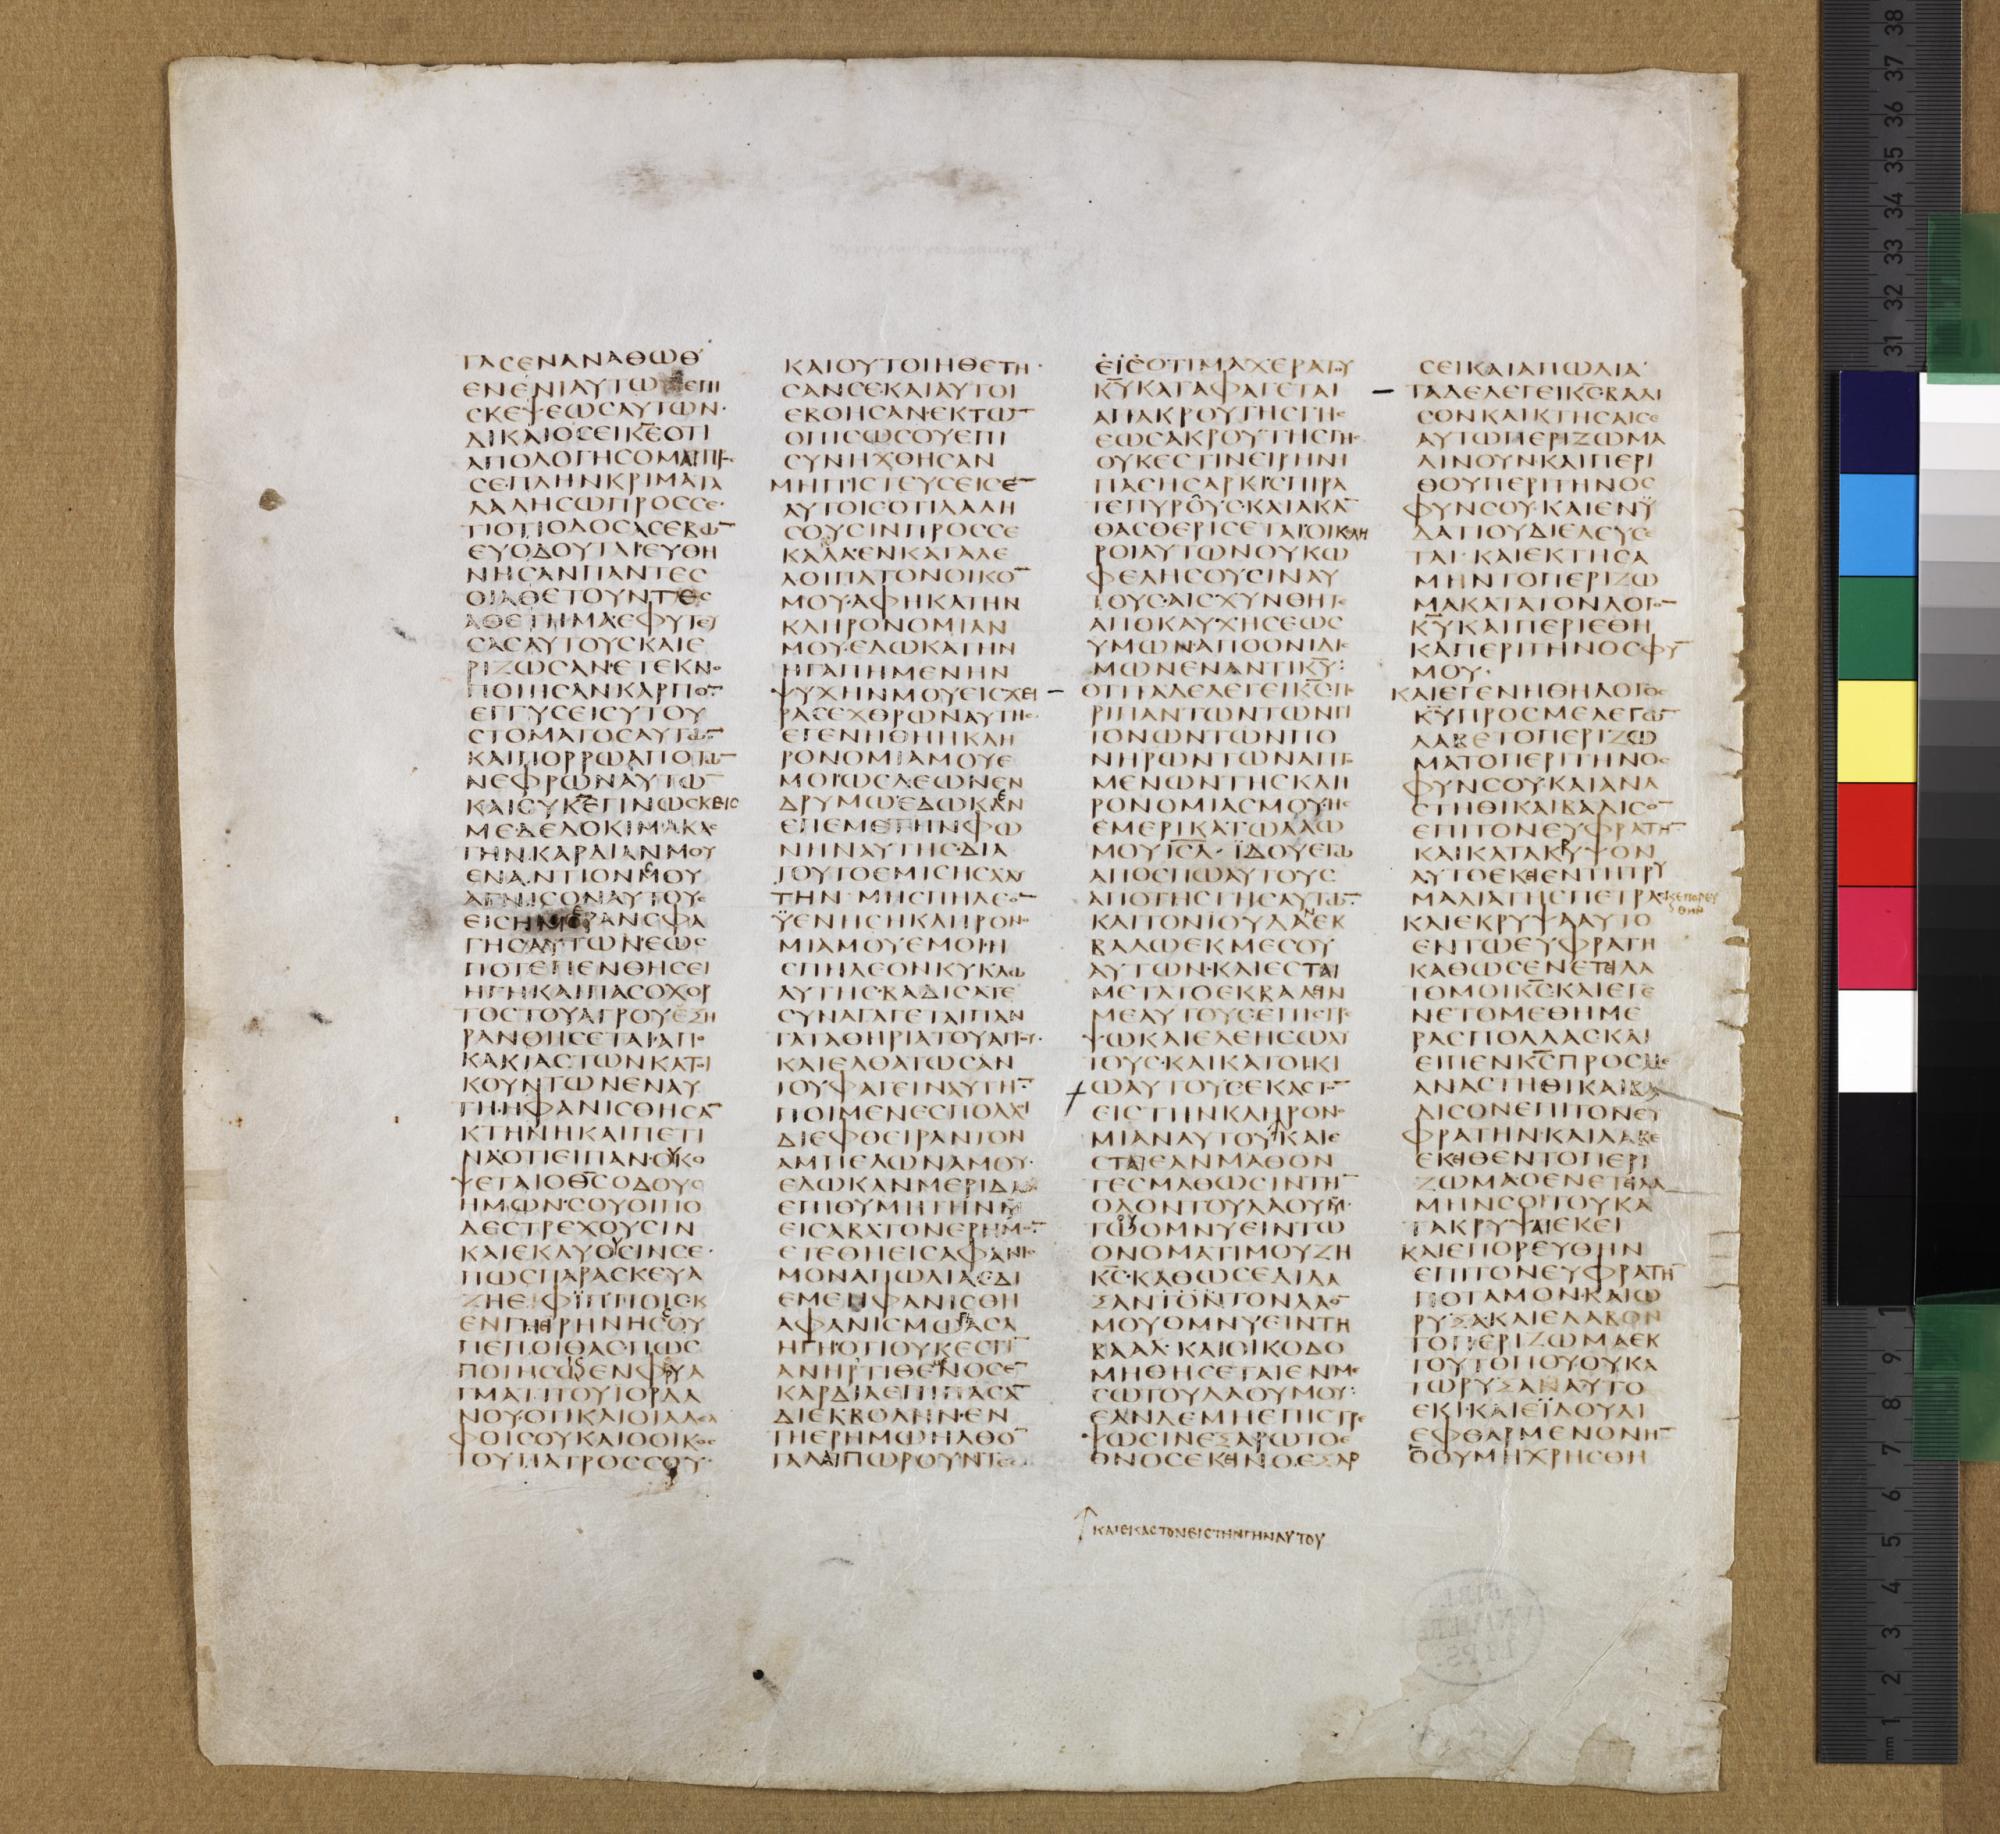 ΓΑСΕΝΑΝΑΘΩΘ
ΕΝΕΝΙΑΥΤΩ ΕΠΙ
СΚΕΨΕΩСΑΥΤΩΝ·
ΔΙΚΑΙΟСΕΙΚ̅Ε̅ΟΤΙ
ΑΠΟΛΟΓΗСΟΜΑΙΠΡ
СΕΠΛΗΝΚΡΙΜΑΤΑ
ΛΑΛΗСΩΠΡΟССΕ·
ΤΙΟΤΙΟΔΟСΑСΕΒΩ̅
ΕΥΟΔΟΥΤΑΙΕΥΘΗ
ΝΗСΑΝΠΑΝΤΕС
ΟΙΑΘΕΤΟΥΝΤΕС
ΑΘΕΤΗΜΑΕΦΥΤΕΥ
СΑСΑΥΤΟΥСΚΑΙΕ
ΡΙΖΩСΑΝΕΤΕΚΝΟ
ΠΟΙΗСΑΝΚΑΡΠΟ̅
ΕΓΓΥСΕΙСΥΤΟΥ
СΤΟΜΑΤΟСΑΥΤΩ̅
ΚΑΙΠΟΡΡΩΑΠΟΤΩ̅
ΝΕΦΡΩΝΑΥΤΩ̅
ΚΑΙСΥΚ̅Ε̅ΓΙΝΩСΚΕΙС
ΜΕΔΕΔΟΚΙΜΑΚΑС
ΤΗΝΚΑΡΔΙΑΝΜΟΥ
ΕΝΑΝΤΙΟΝСΟΥ
ΑΓΝΙСΟΝΑΥΤΟΥС
ΕΙСΗΜΕΡΑΝСΦΑ
ΓΗСΑΥΤΩΝΕΩС
ΠΟΤΕΠΕΝΘΗСΕΙ
ΗΓΗΚΑΙΠΑСΟΧΟΡ
ΤΟСΤΟΥΑΓΡΟΥΞΗ
ΡΑΝΘΗСΕΤΑΙΑΠΟ
ΚΑΚΙΑСΤΩΝΚΑΤΟΙ
ΚΟΥΝΤΩΝΕΝΑΥ
ΤΗΗΦΑΝΙСΘΗСΑ̅
ΚΤΗΝΗΚΑΙΠΕΤΙ
ΝΑΟΤΙΕΙΠΑΝΟΥΚΟ
ΨΕΤΑΙΟΘ̅С̅ΟΔΟΥС
ΗΜΩΝСΟΥΟΙΠΟ
ΔΕСΤΡΕΧΟΥСΙΝ
ΚΑΙΕΚΛΥΟΥСΙΝСΕ·
ΠΩСΠΑΡΑСΚΕΥΑ
ΖΗΕΦΪΠΠΟΙСΚ
ΕΝΓΗΕΙΡΗΝΗССΟΥ
ΠΕΠΟΙΘΑСΠΩС
ΠΟΙΗСΙСΕΝΦΡΥΑ
ΓΜΑΤΙΤΟΥΙΟΡΔΑ
ΝΟΥΟΤΙΚΑΙΟΙΑΔΕΛ
ΦΟΙСΟΥΚΑΙΟΟΙΚΟС
ΤΟΥΠΑΤΡΟССΟΥ·
ΚΑΙΟΥΤΟΙΗΘΕΤΗ·
СΑΝСΕΚΑΙΑΥΤΟΙ
ΕΒΟΗСΑΝΕΚΤΩ̅
ΟΠΙСΩСΟΥΕΠΙ
СΥΝΗΧΘΗСΑΝ
ΜΗΠΙСΤΕΥСΕΙСΕ̅
ΑΥΤΟΙСΟΤΙΛΑΛΗ
СΟΥСΙΝΠΡΟССΕ
ΚΑΛΑΕΝΚΑΤΑΛΕ
ΛΟΙΠΑΤΟΝΟΙΚΟ̅
ΜΟΥΑΦΗΚΑΤΗΝ
ΚΛΗΡΟΝΟΜΙΑΝ
ΜΟΥΕΔΩΚΑΤΗΝ
ΗΓΑΠΗΜΕΝΗΝ
ΨΥΧΗΝΜΟΥΕΙСΧΕΙ
ΡΑСΕΧΘΡΩΝΑΥΤΗС·
ΕΓΕΝΗΘΗΗΚΛΗ
ΡΟΝΟΜΙΑΜΟΥΕ
ΜΟΙΩСΛΕΩΝΕΝ
ΔΡΥΜΩΕΔΩΚΕΝ
ΕΠΕΜΕΤΗΝΦΩ
ΝΗΝΑΥΤΗСΔΙΑ
ΤΟΥΤΟΕΜΙСΗСΑΑΥ
ΤΗΝ ΜΗСΠΗΛΕΟ̅
ΫΕΝΗСΗΚΛΗΡΟΝΟ
ΜΙΑΜΟΥΕΜΟΙΗ
СΠΗΛΕΟΝΚΥΚΛΩ
ΑΥΤΗСΒΑΔΙСΑΤΕ
СΥΝΑΓΑΓΕΤΑΙΠΑΝ
ΤΑΤΑΘΗΡΙΑΤΟΥΑΓΡΟΥ·
ΚΑΙΕΛΘΑΤΩСΑΝ
ΤΟΥΦΑΓΕΙΝΑΥΤΗ̅
ΠΟΙΜΕΝΕСΠΟΛΛΟΙ
ΔΙΕΦΘΕΙΡΑΝΤΟΝ
ΑΜΠΕΛΩΝΑΜΟΥ·
ΕΔΩΚΑΝΜΕΡΙΔΑ
ΕΠΙΘΥΜΗΤΗΝΜΟΥ
ΕΙСΑΒΑΤΟΝΕΡΗΜΟ̅
ΕΤΕΘΗΕΙСΑΦΑΝΙС
ΜΟΝΑΠΩΛΙΑСΔΙ
ΕΜΕΗΦΑΝΙСΘΗ
ΑΦΑΝΙСΜΩΠΑСΑ
ΗΓΗΟΤΙΟΥΚΕСΤΙ̅
ΑΝΗΡΤΙΘΕΜΕΝΟСΕ̅
ΚΑΡΔΙΑΕΠΙΠΑСΑ̅
ΔΙΕΚΒΟΛΗΝΕΝ
ΤΗΕΡΗΜΩΗΛΘΟ̅
ΤΑΛΑΙΠΩΡΟΥΝΤΕС
ΕΙСΟΤΙΜΑΧΕΡΑΤΟΥ
Κ̅Υ̅ΚΑΤΑΦΑΓΕΤΑΙ
ΑΠΑΚΡΟΥΤΗСΓΗС
ΕΩСΑΚΡΟΥΤΗСΓΗС
ΟΥΚΕСΤΙΝΕΙΡΗΝΗ
ΠΑСΗСΑΡΚΙСΠΙΡΑ
ΤΕΠΥΡΟΥСΚΑΙΑΚΑ̅
ΘΑСΘΕΡΙСΕΤΑΙΟΙΚΛΗ
ΡΟΙΑΥΤΩΝΟΥΚΩ
ΦΕΛΗСΟΥСΙΝΑΥ
ΤΟΥСΑΙСΧΥΝΘΗΤΕ
ΑΠΟΚΑΥΧΗСΕΩС
ΥΜΩΝΑΠΟΟΝΙΔΙС
ΜΩΝΕΝΑΝΤΙΚ̅Υ̅:
ΟΤΙΤΑΔΕΛΕΓΕΙΚ̅С̅ΠΕ
ΡΙΠΑΝΤΩΝΤΩΝΓΙ
ΤΟΝΩΝΤΩΝΠΟ
ΝΗΡΩΝΤΩΝΑΠΤΟ
ΜΕΝΩΝΤΗСΚΛΗ
ΡΟΝΟΜΙΑСΜΟΥΗС
ΕΜΕΡΙΚΑΤΩΛΑΩ
ΜΟΥΙ̅С̅Λ̅· ΪΔΟΥΕΓΩ
ΑΠΟСΠΩΑΥΤΟΥС
ΑΠΟΤΗСΓΗСΑΥΤΩ̅·
ΚΑΙΤΟΝΙΟΥΔΑΝΕΚ
ΒΑΛΩΕΚΜΕСΟΥ
ΑΥΤΩΝ·ΚΑΙΕСΤΑΙ
ΜΕΤΑΤΟΕΚΒΑΛΙΝ
ΜΕΑΥΤΟΥСΕΠΙСΤΡΕ
ΨΩΚΑΙΕΛΕΗСΩΑΥ
ΤΟΥС·ΚΑΙΚΑΤΟΙΚΙ
ΩΑΥΤΟΥСΕΚΑСΤΟ̅
ΕΙСΤΗΝΚΛΗΡΟΝΟ
ΜΙΑΝΑΥΤΟΥΚΑΙΕ
СΤΑΙΕΑΝΜΑΘΟΝ
ΤΕСΜΑΘΩСΙΝΤΗ̅
ΟΔΟΝΤΟΥΛΑΟΥΜΟΥ·
ΤΟΥΟΜΝΥΕΙΝΤΩ
ΟΝΟΜΑΤΙΜΟΥΖΗ
Κ̅С̅ΚΑΘΩСΕΔΙΔΑ
ΞΑΝΤΟΝΛΑΟ̅
ΜΟΥΟΜΝΥΕΙΝΤΗ
ΒΑΑΛ·ΚΑΙΟΙΚΟΔΟ
ΜΗΘΗСΕΤΑΙΕΝΜΕ
СΩΤΟΥΛΑΟΥΜΟΥ:
ΕΑΝΔΕΜΗΕΠΙСΤΡΕ
ΨΩСΙΝΕΞΑΡΩΤΟΕ
ΘΝΟСΕΚΕΙΝΟΕΞΑΡ
ΚΑΙΕΚΑСΤΟΝΕΙСΤΗΝΓΗΝΑΥΤΟΥ
СΕΙΚΑΙΑΠΩΛΙΑ·
ΤΑΔΕΛΕΓΕΙΚ̅С̅ΒΑΔΙ
СΟΝΚΑΙΚΤΗСΑΙСΕ
ΑΥΤΩΠΕΡΙΖΩΜΑ
ΛΙΝΟΥΝΚΑΙΠΕΡΙ
ΘΟΥΠΕΡΙΤΗΝΟС
ΦΥΝСΟΥ·ΚΑΙΕΝΫ
ΔΑΤΙΟΥΔΙΕΛΕΥСΕ
ΤΑΙ·ΚΑΙΕΚΤΗСΑ
ΜΗΝΤΟΠΕΡΙΖΩ
ΜΑΚΑΤΑΤΟΝΛΟΓΟ̅
Κ̅Υ̅ΚΑΙΠΕΡΙΕΘΗ
ΚΑΠΕΡΙΤΗΝΟСΦΥ̅
ΜΟΥ·
ΚΑΙΕΓΕΝΗΘΗΛΟΓΟС
Κ̅Υ̅ΠΡΟСΜΕΛΕΓΩ̅
ΛΑΒΕΤΟΠΕΡΙΖΩ
ΜΑΤΟΠΕΡΙΤΗΝΟС
ΦΥΝСΟΥ·ΚΑΙΑΝΑ
СΤΗΘΙΚΑΙΒΑΔΙСΟ̅
ΕΠΙΤΟΝΕΥΦΡΑΤΗ̅
ΚΑΙΚΑΤΑΚΡΥΨΟΝ
ΑΥΤΟΕΚΕΙΕΝΤΗΤΡΥ
ΜΑΛΙΑΤΗСΠΕΤΡΑС
ΚΑΙΕΚΡΥΨΑΑΥΤΟ
ΕΝΤΩΕΥΦΡΑΤΗ
ΚΑΘΩСΕΝΕΤΕΙΛΑ
ΤΟΜΟΙΚ̅С̅ΚΑΙΕΓΕ
ΝΕΤΟΜΕΘΗΜΕ
ΡΑСΠΟΛΛΑСΚΑΙ
ΕΙΠΕΝΚ̅С̅ΠΡΟСΜΕ
ΑΝΑСΤΗΘΙΚΑΙΒΑ
ΔΙСΟΝΕΠΙΤΟΝΕΥ
ΦΡΑΤΗΝ·ΚΑΙΛΑΒΕ
ΕΚΕΙΘΕΝΤΟΠΕΡΙ
ΖΩΜΑΟΕΝΕΤΕΙΛΑ
ΜΗΝСΟΙΤΟΥΚΑ
ΤΑΚΡΥΨΑΙΕΚΕΙ
ΚΑΙΕΠΟΡΕΥΘΗΝ
ΕΠΙΤΟΝΕΥΦΡΑΤΗ̅
ΠΟΤΑΜΟΝ·ΚΑΙΩ
ΡΥΞΑΚΑΙΕΛΑΒΟΝ
ΤΟΠΕΡΙΖΩΜΑΕΚ
ΤΟΥΤΟΠΟΥΟΥΚΑ
ΤΩΡΥΞΑΝΑΥΤΟ
ΕΚΙ·ΚΑΙΕΪΔΟΥΔΙ
ΕΦΘΑΡΜΕΝΟΝΗ̅
ΟΟΥΜΗΧΡΗСΘΗ